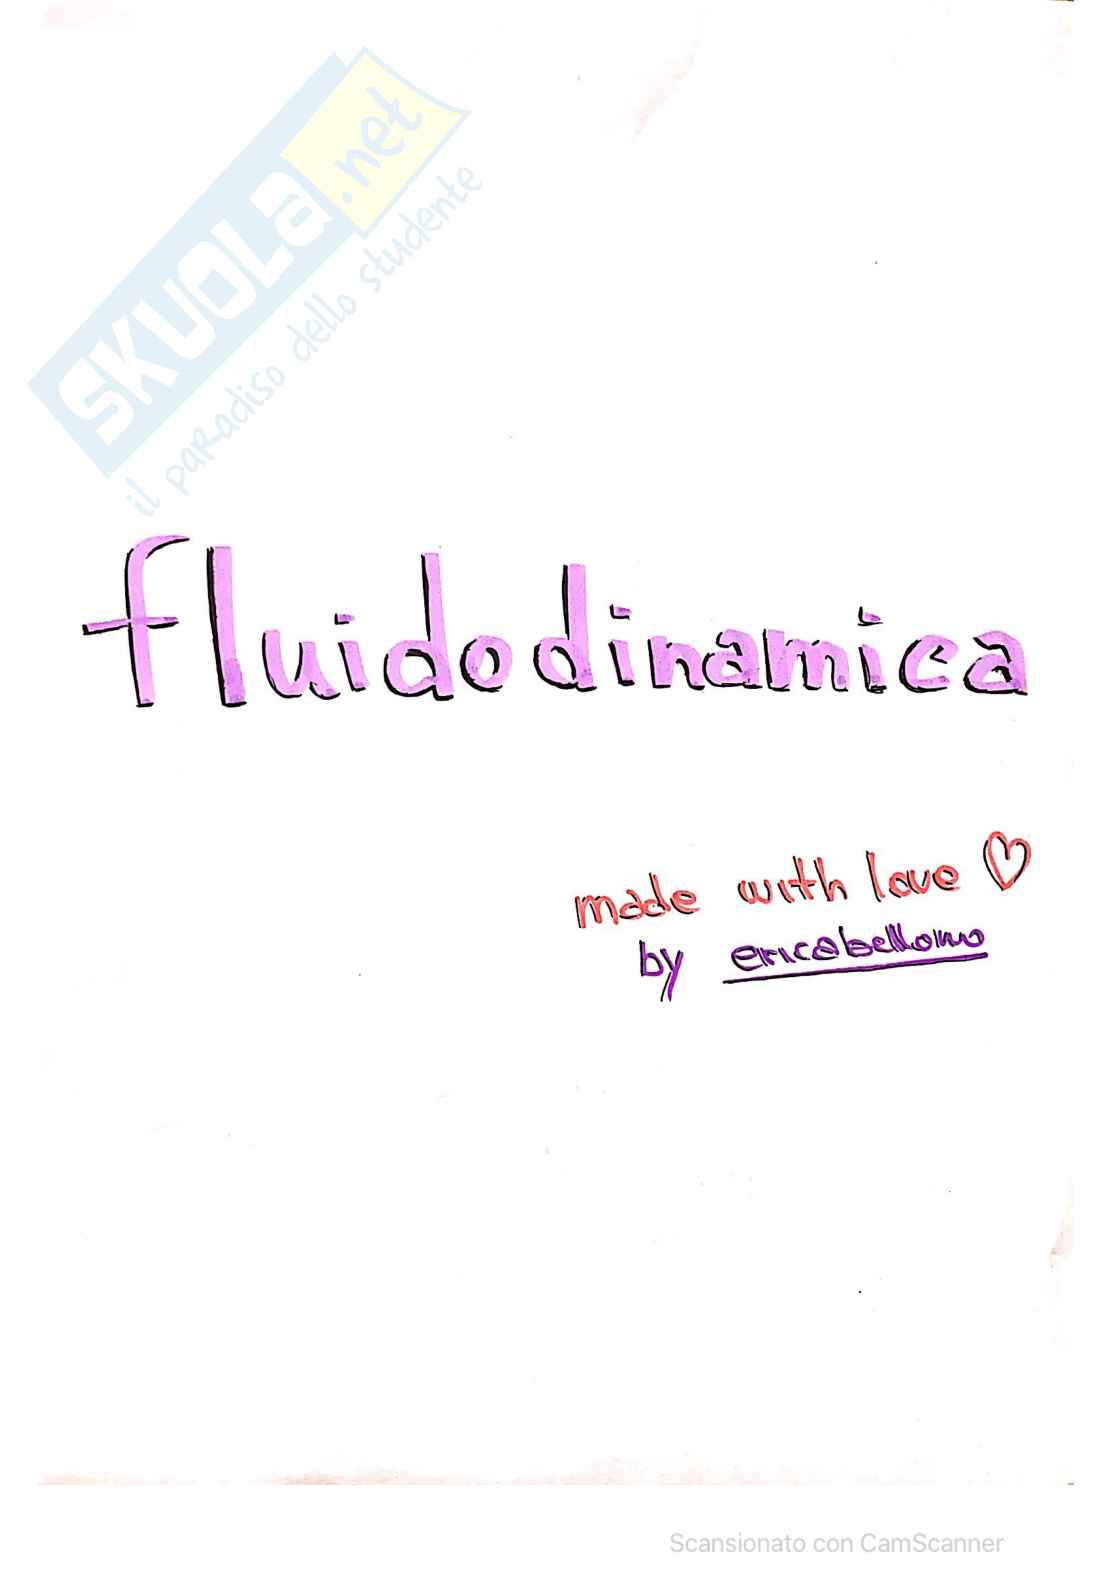 SKUOLA.net
il paradiso dello studente
fluidodinamica
made with love ♡
by ericabellomo
Scansionato con CamScanner